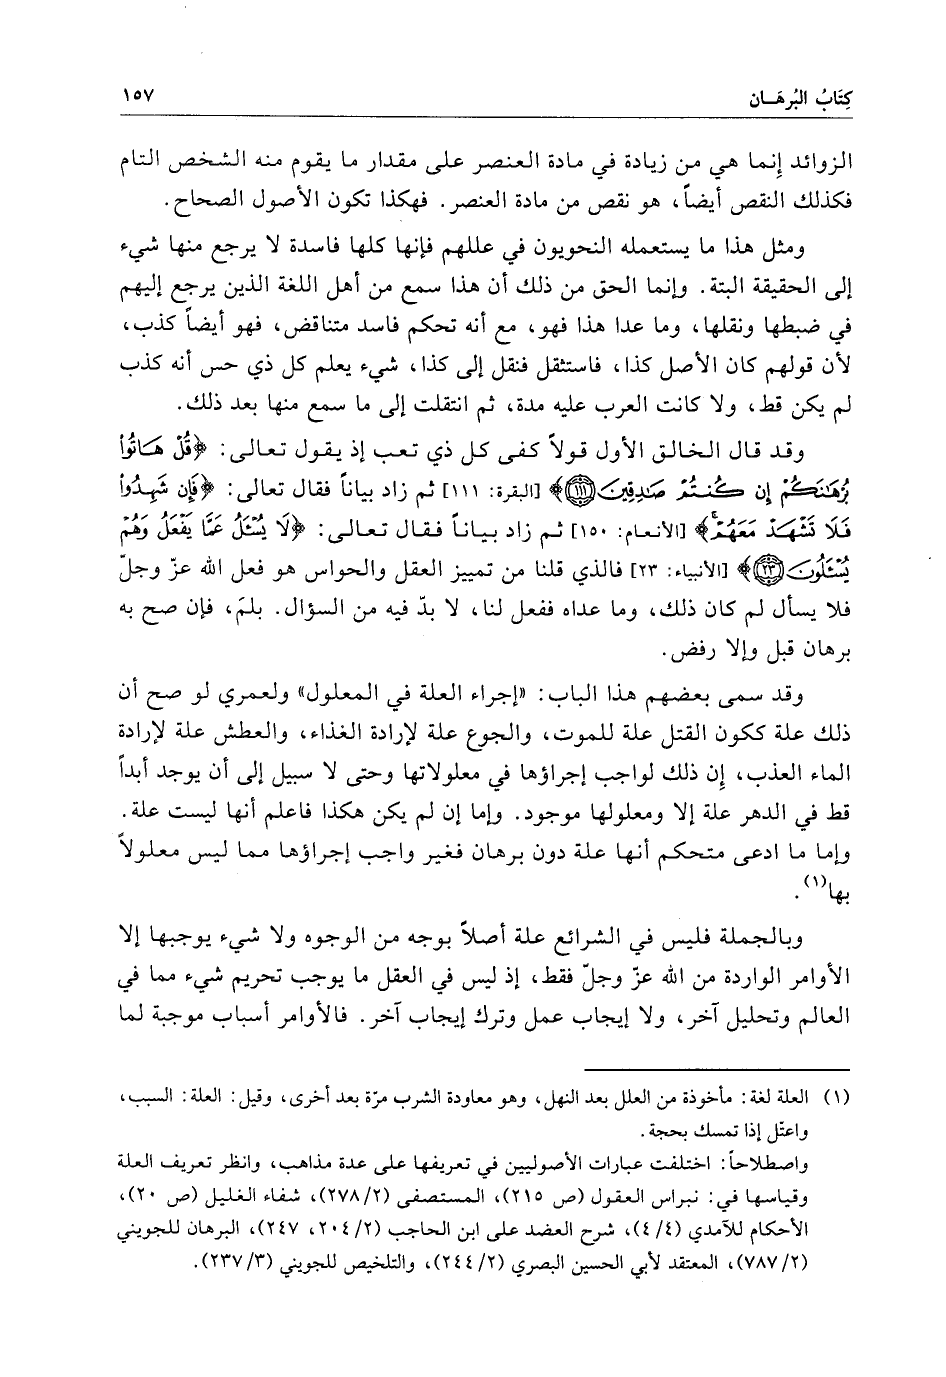 كِتَابُ البُرهَـان ١٥٧
الزوائد إنما هي من زيادة في مادة العنصر على مقدار ما يقوم منه الشخص التام
فكذلك النقص أيضاً، هو نقص من مادة العنصر. فهكذا تكون الأصول الصحاح.
ومثل هذا ما يستعمله النحويون في عللهم فإنها كلها فاسدة لا يرجع منها شيء
إلى الحقيقة البتة. وإنما الحق من ذلك أن هذا سمع من أهل اللغة الذين يرجع إليهم
في ضبطها ونقلها، وما عدا هذا فهو، مع أنه تحكم فاسد متناقض، فهو أيضاً كذب،
لأن قولهم كان الأصل كذا، فاستثقل فنقل إلى كذا، شيء يعلم كل ذي حس أنه كذب
لم يكن قط، ولا كانت العرب عليه مدة، ثم انتقلت إلى ما سمع منها بعد ذلك.
وقد قال الخالق الأول قولاً كفى كل ذي تعب إذ يقول تعالى: ﴿قُلْ هَاتُوا۟
بُرْهَٰنَكُمْ إِن كُنتُمْ صَٰدِقِينَ ١١١﴾ [البقرة: ١١١] ثم زاد بياناً فقال تعالى: ﴿فَإِن شَهِدُوا۟
فَلَا تَشْهَدْ مَعَهُمْ﴾ [الأنعام: ١٥٠] ثم زاد بياناً فقال تعالى: ﴿لَا يُسْـَٔلُ عَمَّا يَفْعَلُ وَهُمْ
يُسْـَٔلُونَ ٢٣﴾ [الأنبياء: ٢٣] فالذي قلنا من تمييز العقل والحواس هو فعل الله عزّ وجلّ
فلا يسأل لم كان ذلك، وما عداه ففعل لنا، لا بدّ فيه من السؤال. بلمَ، فإن صح به
برهان قبل وإلا رفض.
وقد سمى بعضهم هذا الباب: «إجراء العلة في المعلول» ولعمري لو صح أن
ذلك علة ككون القتل علة للموت، والجوع علة لإرادة الغذاء، والعطش علة لإرادة
الماء العذب، إن ذلك لواجب إجراؤها في معلولاتها وحتى لا سبيل إلى أن يوجد أبداً
قط في الدهر علة إلا ومعلولها موجود. وإما إن لم يكن هكذا فاعلم أنها ليست علة.
وإما ما ادعى متحكم أنها علة دون برهان فغير واجب إجراؤها مما ليس معلولاً
بها(١).
وبالجملة فليس في الشرائع علة أصلاً بوجه من الوجوه ولا شيء يوجبها إلا
الأوامر الواردة من الله عزّ وجلّ فقط، إذ ليس في العقل ما يوجب تحريم شيء مما في
العالم وتحليل آخر، ولا إيجاب عمل وترك إيجاب آخر. فالأوامر أسباب موجبة لما
(١) العلة لغة: مأخوذة من العلل بعد النهل، وهو معاودة الشرب مرّة بعد أخرى، وقيل: العلة: السبب،
واعتّل إذا تمسك بحجة.
واصطلاحاً: اختلفت عبارات الأصوليين في تعريفها على عدة مذاهب، وانظر تعريف العلة
وقياسها في: نبراس العقول (ص ٢١٥)، المستصفى (٢٧٨/٢)، شفاء الغليل (ص ٢٠)،
الأحكام للآمدي (٤/٤)، شرح العضد على ابن الحاجب (٢٠٤/٢، ٢٤٧)، البرهان للجويني
(٧٨٧/٢)، المعتقد لأبي الحسين البصري (٢٤٤/٢)، والتلخيص للجويني (٢٣٧/٣).